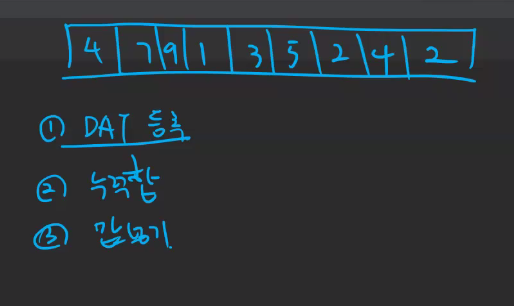 4 7 9 1 3 5 2 4 2
① DAT 등록
② 누적합
③ 값넣기